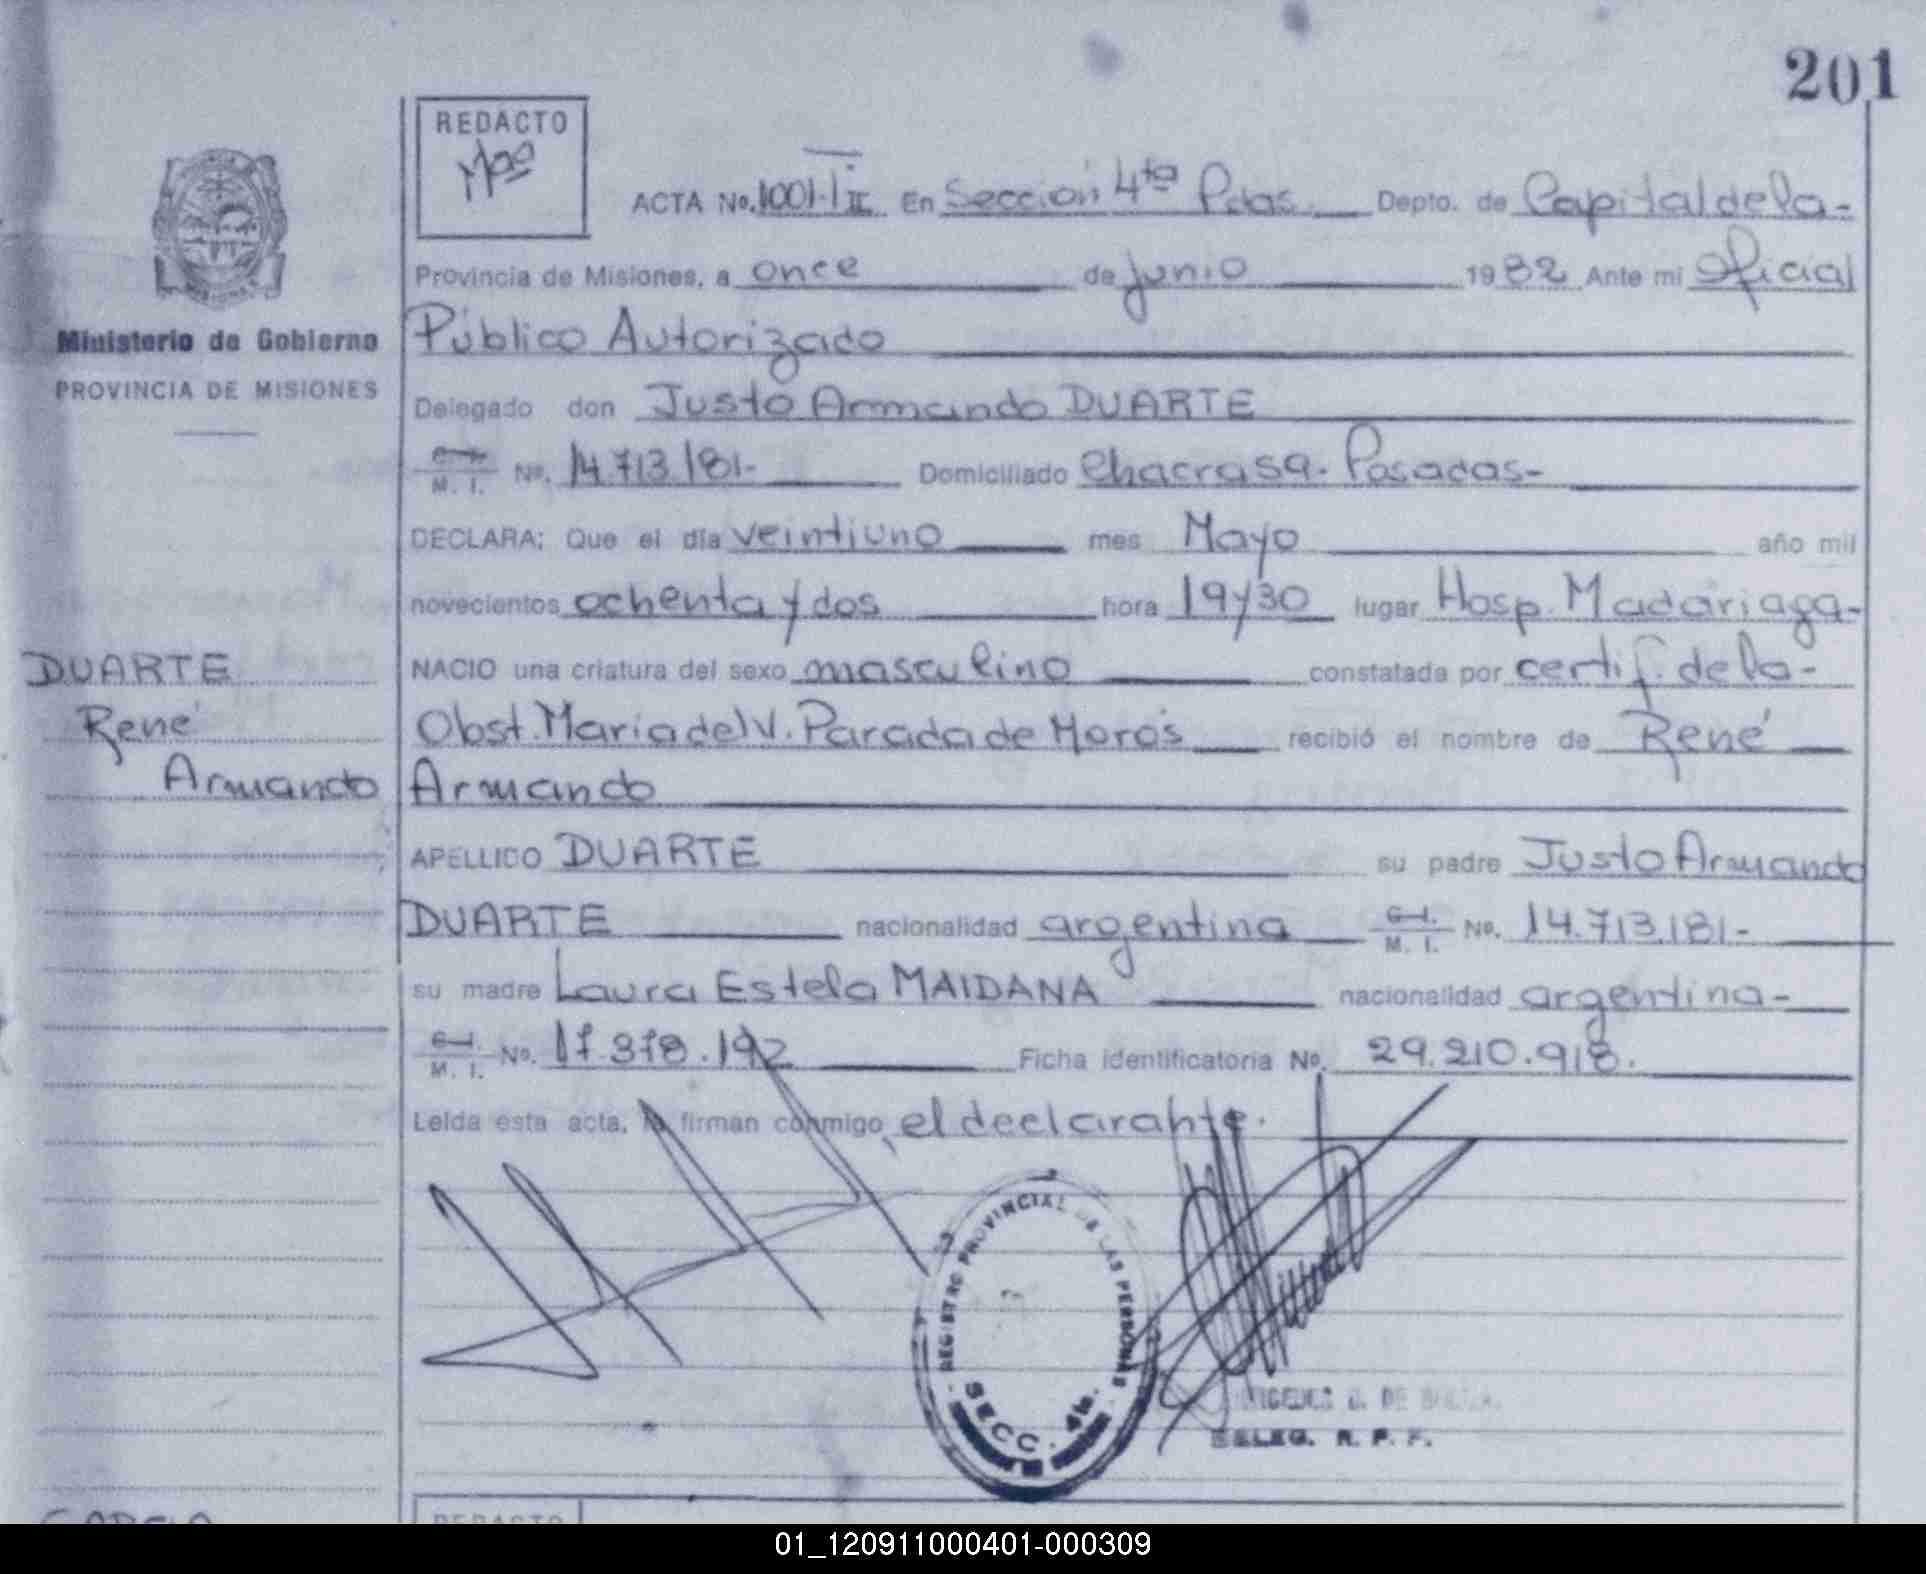 201
REDACTO
ACTA No. 1001-T II En Sección 4ta Pdas. Depto. de Capital de la-
Provincia de Misiones, a once de junio 1982 Ante mi Oficial
Ministerio de Gobierno
PROVINCIA DE MISIONES
Público Autorizado
Delegado don Justo Armando DUARTE
C.I. M. I. No. 14.713.181- Domiciliado Posadas-
DECLARA: Que el día veintiuno mes Mayo año mil
novecientos ochenta y dos hora 19y30 lugar Hosp. Madariaga-
DUARTE
René
Armando
NACIO una criatura del sexo masculino constatada por certif. de la-
Obst. Maria del V. Parada de Morós recibió el nombre de René
Armando
APELLIDO DUARTE su padre Justo Armando
DUARTE nacionalidad argentina C.I. M. I. No. 14.713.181-
su madre Laura Estela MAIDANA nacionalidad argentina-
C.I. M. I. No. 17.378.192 Ficha identificatoria No. 29.210.918.
Leída esta acta, la firman conmigo, el declarante.
REGISTRO PROVINCIAL DE LAS PERSONAS
SECC. 4ta.
DELEG. R. P. P.
GARCIA
REDACTO
01_120911000401-000309